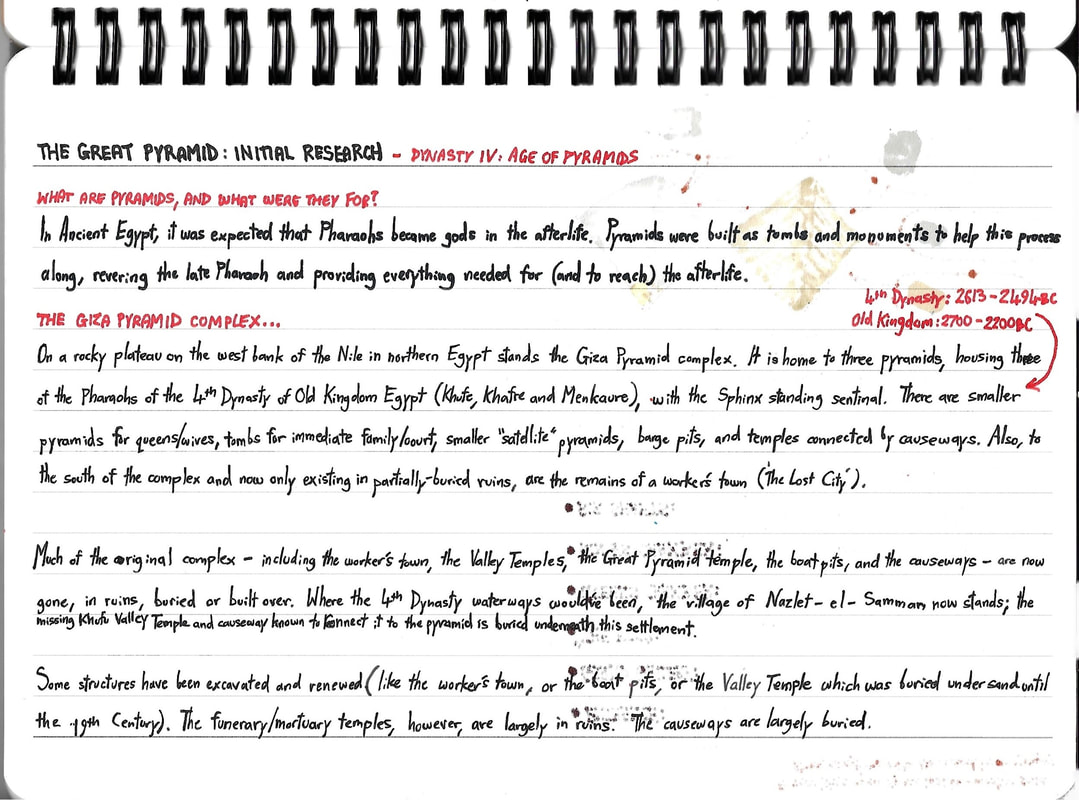 THE GREAT PYRAMID: INITIAL RESEARCH - DYNASTY IV: AGE OF PYRAMIDS
WHAT ARE PYRAMIDS, AND WHAT WERE THEY FOR?
In Ancient Egypt, it was expected that Pharaohs became gods in the afterlife. Pyramids were built as tombs and monoments to help this process
along, revering the late Pharaoh and providing everything needed for (and to reach) the afterlife.
4th Dynasty: 2613-2494BC
THE GIZA PYRAMID COMPLEX...
Old Kingdom: 2700-2200BC
On a rocky plateau on the west bank of the Nile in northern Egypt stands the Giza Pyramid complex. It is home to three pyramids, housing three
of the Pharaohs of the 4th Dynasty of Old Kingdom Egypt (Khufu, Khafre and Menkaure), with the Sphinx standing sentinal. There are smaller
pyramids for queens/wives, tombs for immediate family/court, smaller "satellite" pyramids, barge pits, and temples connected by causeways. Also, to
the south of the complex and now only existing in partially-buried ruins, are the remains of a worker's town ('The Lost City').
Much of the original complex - including the worker's town, the Valley Temples, the Great Pyramid temple, the boat pits, and the causeways - are now
gone, in ruins, buried or built over. Where the 4th Dynasty waterways would've been, the village of Nazlet-el-Samman now stands; the
missing Khufu Valley Temple and causeway known to connect it to the pyramid is buried underneath this settlement.
Some structures have been excavated and renewed (like the worker's town, or the boat pits, or the Valley Temple which was buried under sand until
the 19th Century). The funerary/mortuary temples, however, are largely in ruins. The causeways are largely buried.